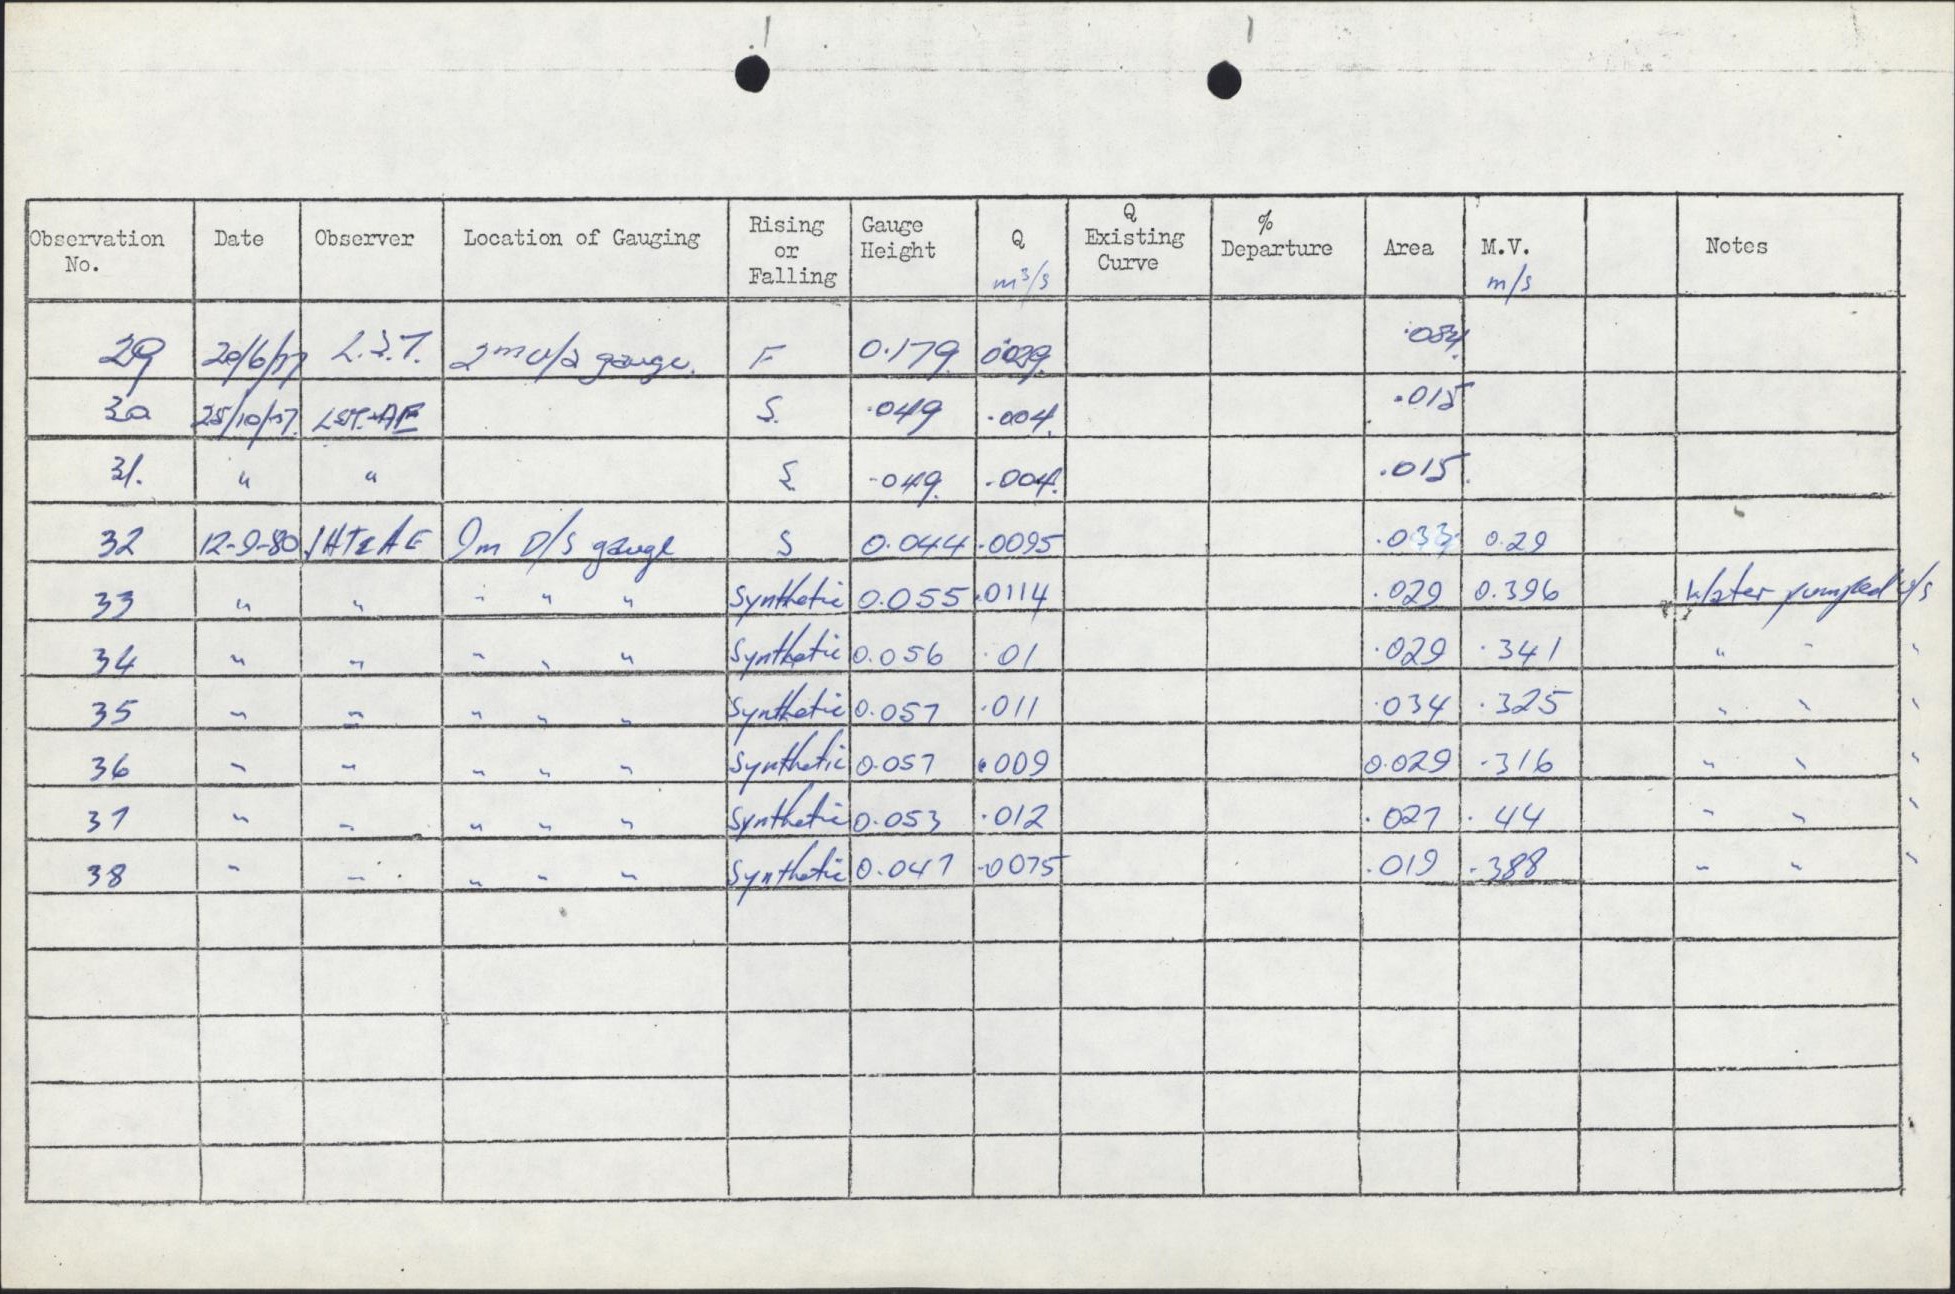 Observation No. Date Observer Location of Gauging Rising or Falling Gauge Height Q m³/s Q Existing Curve % Departure Area M.V. m/s Notes
29 20/6/77 L.S.T. 2m U/S gauge. F 0.179 0.029 .084
30 25/10/77 LST+AE S. .049 .004 .015
31. " " S .049 .004 .015
32 12-9-80 JHT&AE 9m D/S gauge S 0.044 .0095 .033 0.29
33 " " " " " Synthetic 0.055 .0114 .029 0.396 Water pumped U/S
34 " " " " " Synthetic 0.056 .01 .029 .341 " " "
35 " " " " " Synthetic 0.057 .011 .034 .325 " " "
36 " " " " " Synthetic 0.057 .009 0.029 .316 " " "
37 " " " " " Synthetic 0.053 .012 .027 .44 " " "
38 " " " " " Synthetic 0.047 .0075 .019 .388 " " "